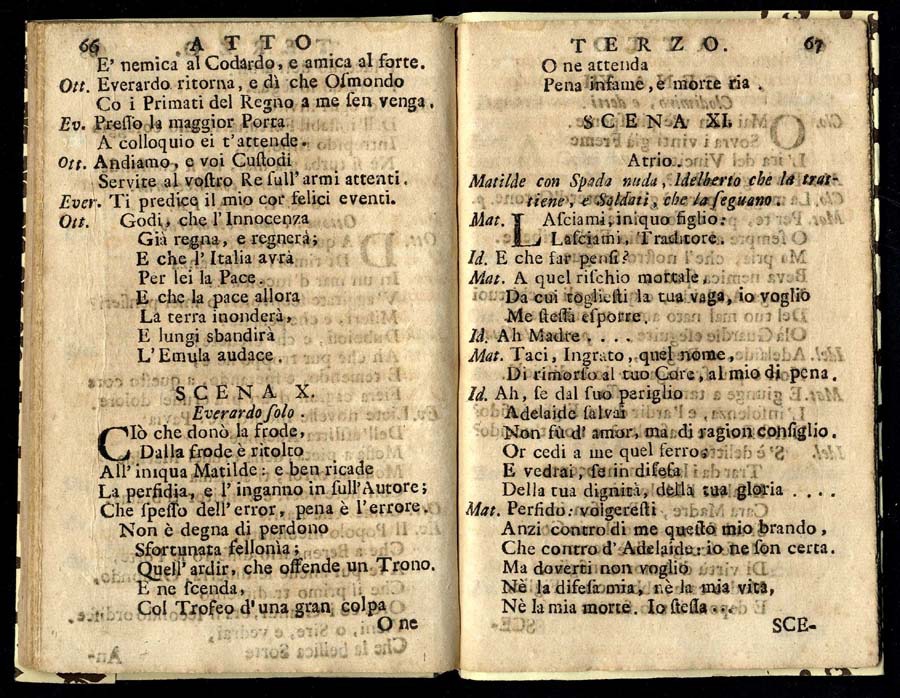 66 ATTO
E' nemica al Codardo, e amica al forte.
Ott. Everardo ritorna, e dì che Oſmondo
Co i Primati del Regno a me ſen venga.
Ev. Preſſo la maggior Porta
A colloquio ei t'attende.
Ott. Andiamo, e voi Cuſtodi
Servite al voſtro Re ſull'armi attenti.
Ever. Ti predico il mio cor felici eventi.
Ott. Godi, che l'Innocenza
Già regna, e regnerà;
E che l'Italia avrà
Per lei la Pace.
E che la pace allora
La terra inonderà,
E lungi sbandirà
L'Emula audace.
SCENA X.
Everardo ſolo.
CIò che donò la frode,
Dalla frode è ritolto
All'iniqua Matilde: e ben ricade
La perfidia, e l'inganno in ſull'Autore;
Che ſpeſſo dell'error, pena è l'errore.
Non è degna di perdono
Sfortunata fellonìa;
Quell'ardir, che offende un Trono.
E ne ſcenda,
Col Trofeo d'una gran colpa
O ne
TERZO. 67
O ne attenda
Pena infame, e morte ria.
SCENA XI.
Atrio.
Matilde con Spada nuda, Idelberto che la trat-
tiene, e Soldati, che la ſeguano.
Mat. LAſciami, iniquo figlio:
Laſciami, Traditore.
Id. E che far penſi?
Mat. A quel riſchio mortale,
Da cui toglieſti la tua vaga, io voglio
Me ſteſſa eſporre.
Id. Ah Madre . . . .
Mat. Taci, Ingrato, quel nome,
Di rimorſo al tuo Core, al mio dì pena.
Id. Ah, ſe dal ſuo periglio
Adelaide ſalvai
Non fù d'amor, ma di ragion conſiglio.
Or cedi a me quel ferro:
E vedrai, ſe in difeſa
Della tua dignità, della tua gloria . . . .
Mat. Perfido: volgereſti
Anzi contro di me queſto mio brando,
Che contro d'Adelaide: io ne ſon certa.
Ma doverti non voglio
Nè la difeſa mia, nè la mia vita,
Nè la mia morte. Io ſteſſa . . .
SCE-